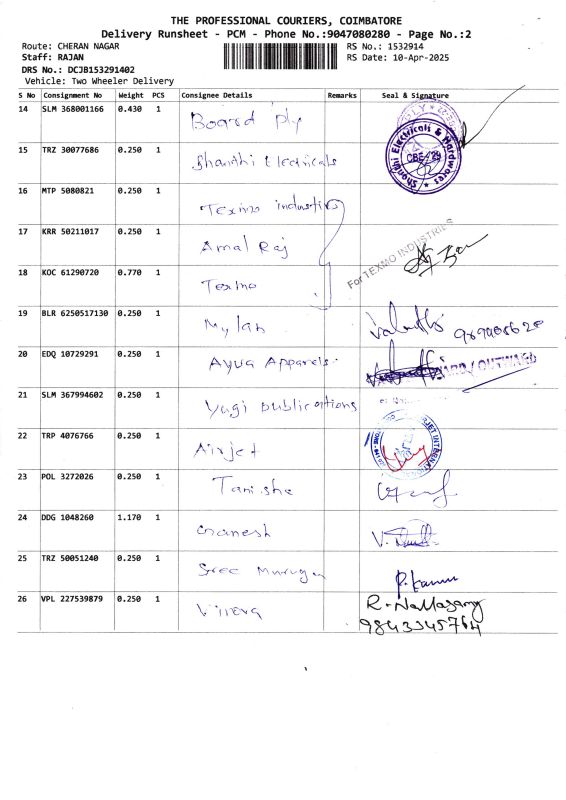 THE PROFESSIONAL COURIERS, COIMBATORE
Delivery Runsheet - PCM - Phone No.:9047080280 - Page No.:2
Route: CHERAN NAGAR RS No.: 1532914
Staff: RAJAN RS Date: 10-Apr-2025
DRS No.: DCJB153291402
Vehicle: Two Wheeler Delivery
S No Consignment No Weight PCS Consignee Details Remarks Seal & Signature
14 SLM 368001166 0.430 1 Board Ply
15 TRZ 30077686 0.250 1 Shanthi Electricals Shanthi Electricals & Hardwares CBE-29
16 MTP 5080821 0.250 1 Texmo industries
17 KRR 50211017 0.250 1 Amal Raj For TEXMO INDUSTRIES
18 KOC 61290720 0.770 1 Texmo
19 BLR 6250517130 0.250 1 Mylan
20 EDQ 10729291 0.250 1 Ayua Apparels
21 SLM 367994602 0.250 1 Yagi publications
22 TRP 4076766 0.250 1 Airjet
23 POL 3272026 0.250 1 Tanishe
24 DDG 1048260 1.170 1 Ganesh
25 TRZ 50051240 0.250 1 Sree Murugan
26 VPL 227539879 0.250 1 R. Nallasamy
9843345764